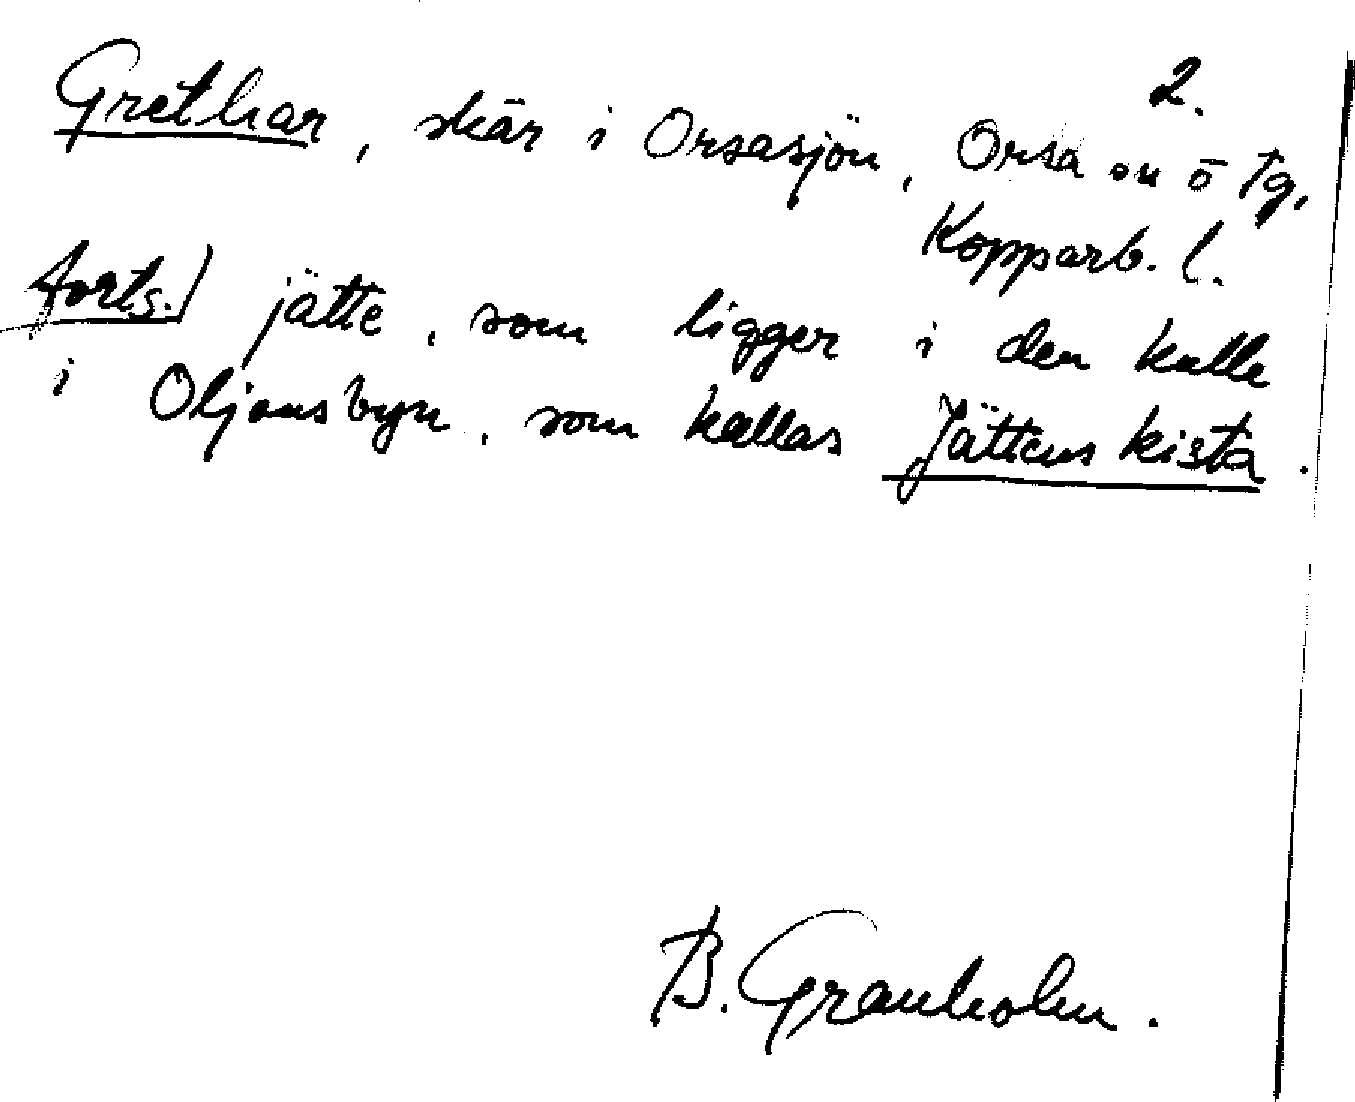 2.
Grethar, skär i Orsasjön, Orsa sn ö tg,
Kopparb. l.
forts.) jätte, som ligger i den kulle
i Oljonsbyn, som kallas Jättens kista.
B. Granholm.